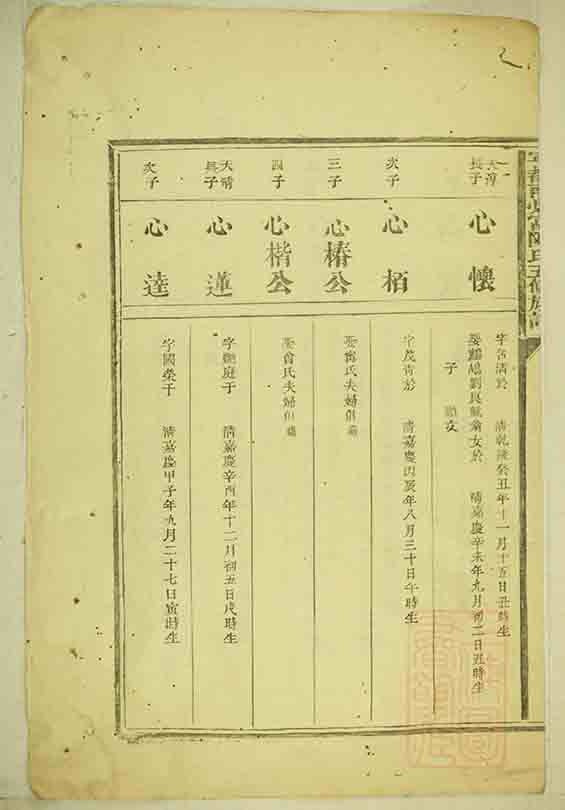 天潯
長子
心懷
字谷清於 清乾隆癸丑年十一月十五日丑時生
劉良賦翁女於 清嘉慶辛未年九月初二日丑時生
子
次子
心栢
字茂青於 清嘉慶丙辰年八月三十日午時生
三子
心椿公
氏夫婦俱
四子
心楷公
氏夫婦俱
天晴
長子
心蓮
字 庭于 清嘉慶辛酉年十二月初五日戌時生
次子
心達
字國榮于 清嘉慶甲子年九月二十七日寅時生